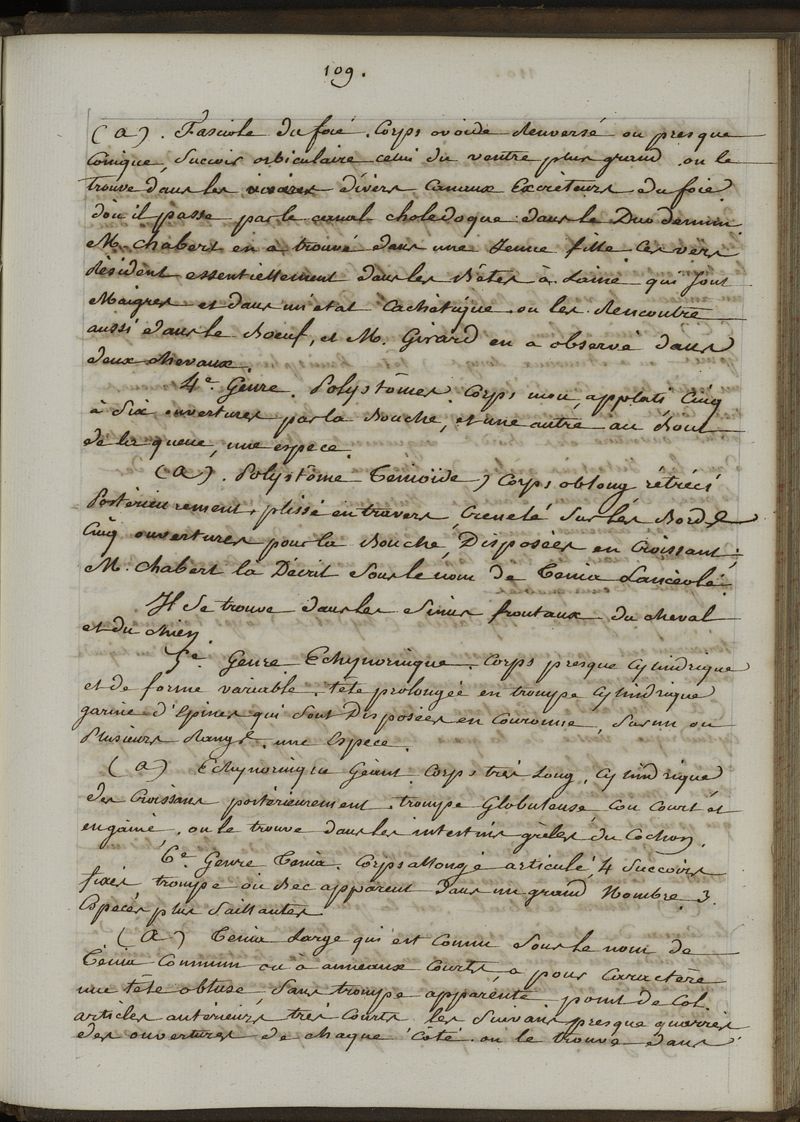 109.
(a). Fasciole du foié. Corps ovoide Renversé ou presque
Conique, Suçoir orbiculaire celui du ventre plus grand on le
trouve dans les divers Canaux Excréteurs du foie
doù il passe par le canal cholédoque dans le Duodenum
M. chabert en a trouvé dans une Jeune fille. Ces vers
Résident essentiellement dans les Bètes à Laine qui sont
Maigres et dans un état Cachétique on les Rencontre
aussi dans le Boeuf, et M. Girard en a observé dans
deux chevaux.
4e. Genre. Polystômes. Corps mou, applati Cinq
à Six ouvertures par la Bouche, et une autre au Bout
de la queue, une espece.
(a). Polystome Tenioïde, Corps oblong rétréci
Postérieurement, plissé en travers, Crenelé Sur les Bords
Cinq ouvertures pour la Bouche, Disposées en Croissant;
M. Chabert la Décrit Sous le nom de Tenia Lancéolé
Il Se trouve dans les Sinus frontaux du cheval
et du chien.
5e. Genre Echynorinque. Corps presque Cylindrique
et de forme variable. tête prolongée en trompe Cylindrique
garnie d'Epines qui Sont Disposées en Couronne, Sur un ou
Plusieurs Rangs. une Espece.
(a) Echynorinque Géant Corps très Long, Cylindrique
des Croissans postérieurement. trompe Globuleuse, cou court et
engainé, on le trouve dans les intestins grêles du Cochon.
6e. Genre Tenia. Corps allongé articulé, 4 Succoirs
fixés trompe ou Bec apparent dans un grand Nombre. 3
Especes plus Saillantes.
(a) Tenia Large qui est Connu Sous le nom de
Ténia Commun ou à anneaux Courts, a pour Caractère
une tête obtuse, Sans trompe apparente. point de Col.
articles antérieurs très Courts les Suivans presque quarrés
des ouvertures de chaque côté. on le trouve dans